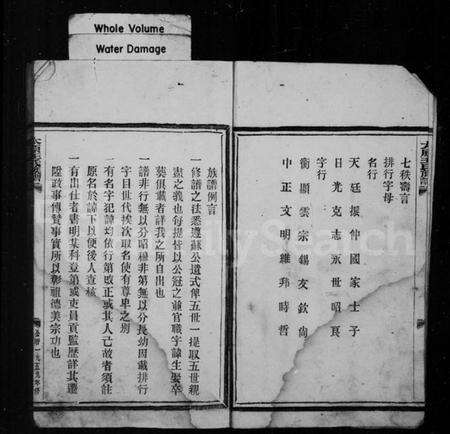 Whole Volume
Water Damage
七秩壽言
排行字母
名行
天廷振仲國家士子
日光克志永世昭良
字行
衡顯雲宗錫友欽尚
中正文明維邦時哲
族譜例言
一修譜之法悉遵蘇公遺式俾五世一提取五世親
盡之義也每提皆以公冠之並官職字諱生娶卒
葬俱載者詳我之所自出也
一譜非行無以分昭穆非第無以分長幼因載排行
字目世代挨次取名使有尊卑之別
一有名字犯諱均依行第改正或其人已故者須註
原名於諱下以便後人查核
一有出仕者書明某科登第或吏員貢監歷詳其遷
陞政事傳贊事實所以彰祖德美宗功也